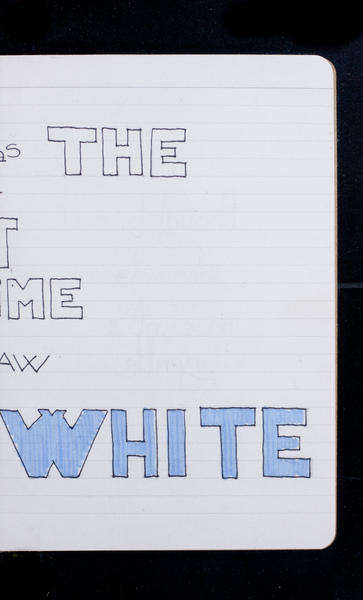 as THE
T
IME
AW
WHITE